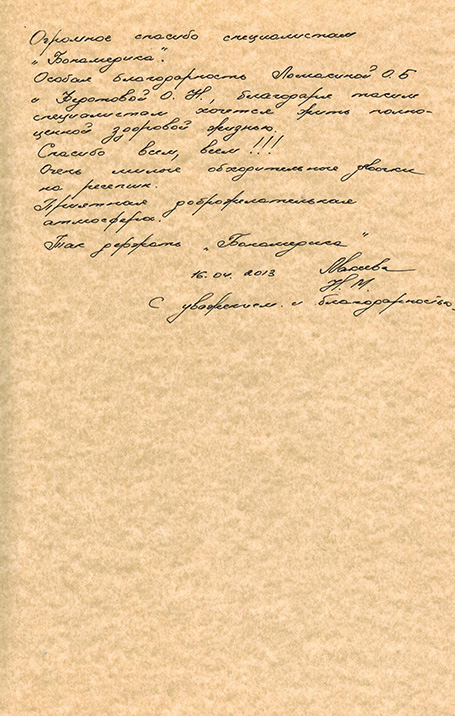 Огромное спасибо специалистам
„Бономедика".
Особая благодарность Ломасиной О.Б
и О.Н., благодаря таким
специалистам хочется жить полно-
ценной здоровой жизнью.
Спасибо всем, всем!!!
Очень милые обходительные девочки
на ресепшн.
Приятная доброжелательная
атмосфера.
Так держать „Бономедика"
16.04.2013
Н.М.
С уважением и благодарностью.